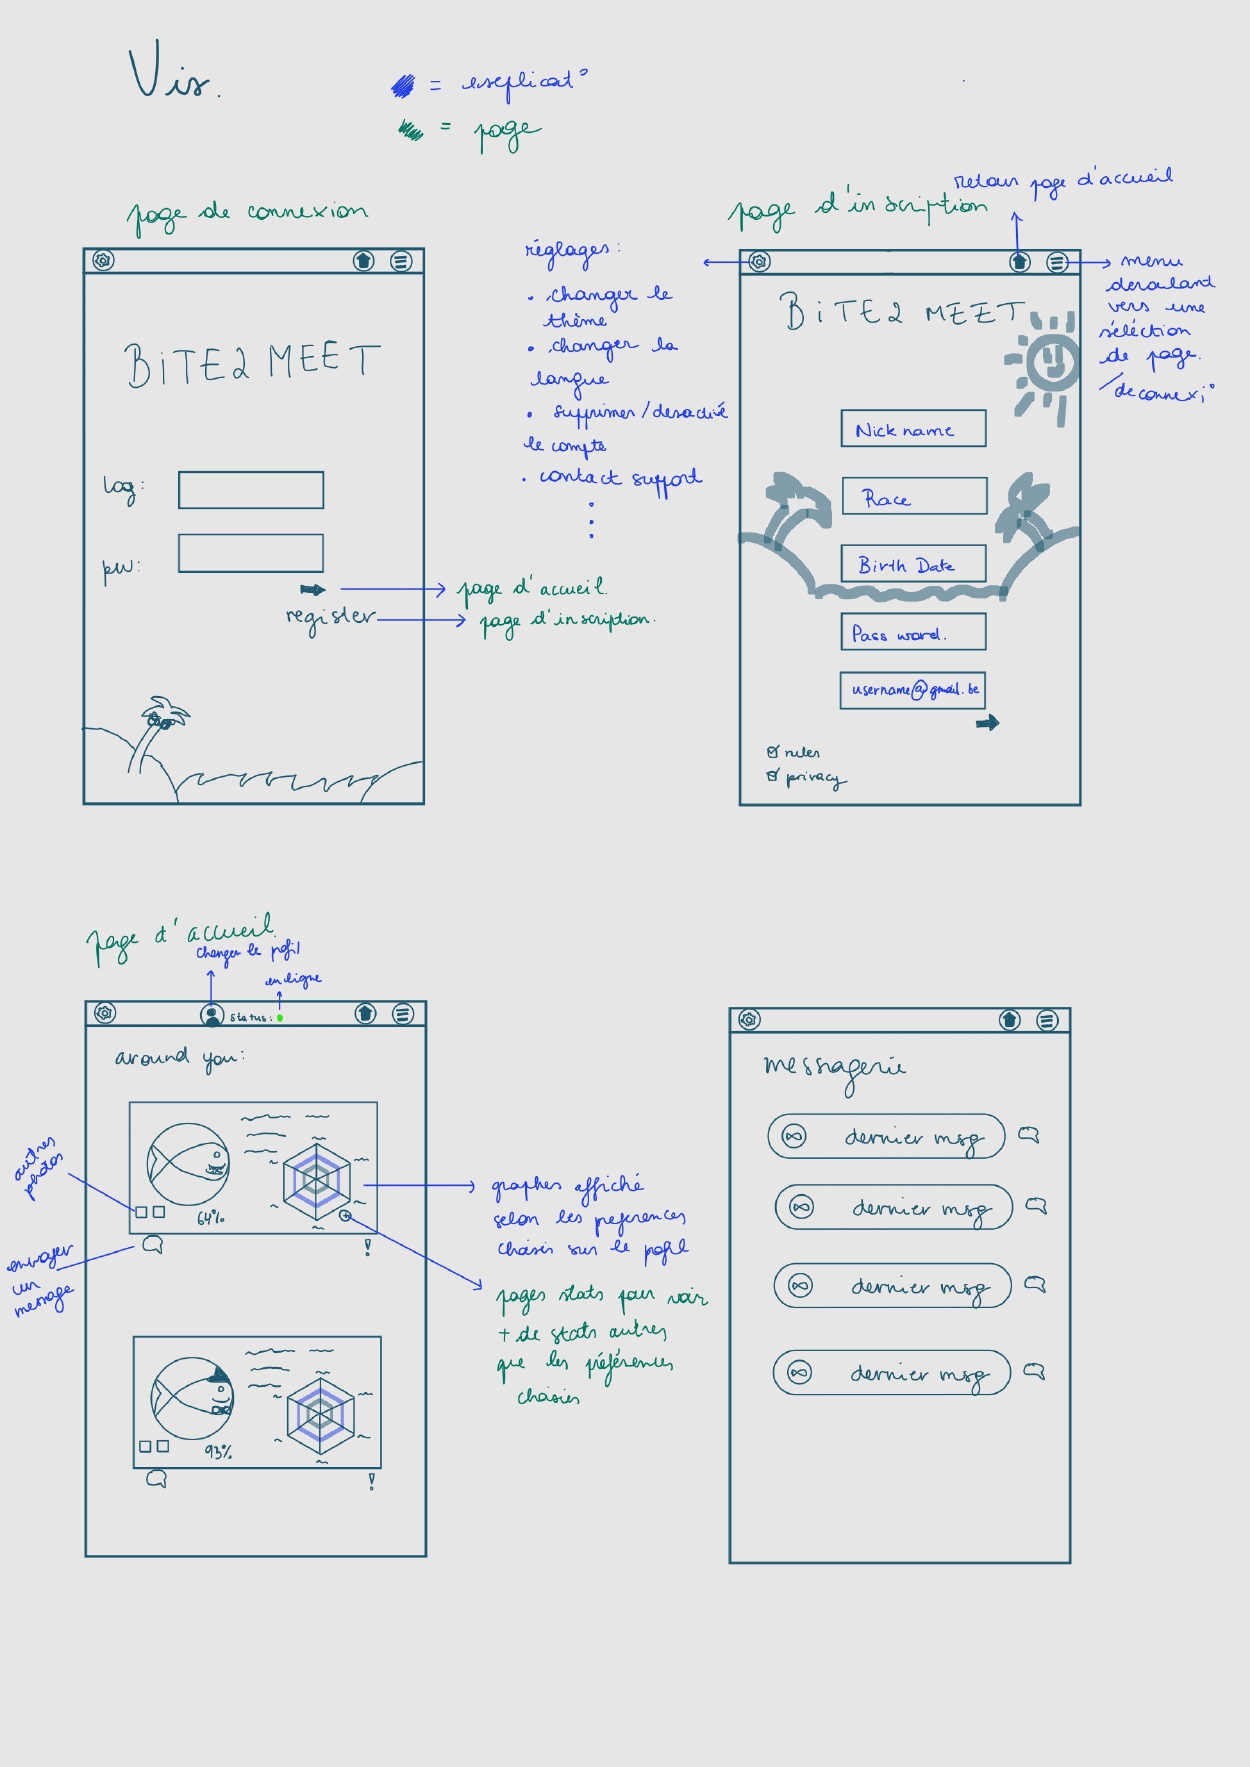 Vis.
= explicat°
= page
page de connexion
BiTE2 MEET
log:
pw:
register
page d'accueil.
page d'inscription.
réglages:
• changer le
thème
• changer la
langue
• supprimer/desactivé
le compte
• contact support
page d'inscription
retour page d'accueil
BiTE2 MEET
Nick name
Race
Birth Date
Pass word.
username@gmail.be
rules
privacy
menu
deroulant
vers une
séléction
de page.
/deconnexi°
page d'accueil.
changer le pofil
en ligne
status:
around you:
autres
photos
64%
envoyer
un
message
93%
graphes affiché
selon les preferences
choisis sur le pofil
pages stats pour voir
+ de stats autres
que les préférences
choisies
messagerie
dernier msg
dernier msg
dernier msg
dernier msg